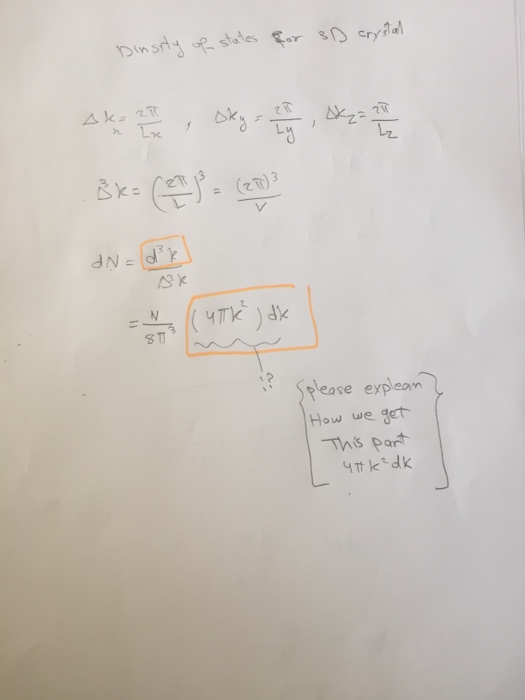 Dinsity of states for 3D crystal
Δkx = 2π/Lx , Δky = 2π/Ly , Δkz = 2π/Lz
Δ³k = (2π/L)³ = (2π)³/V
dN = d³k/Δ³k
= N/8π³ (4πk²) dk
!?
{please explean}
How we get
This part
4πk²dk